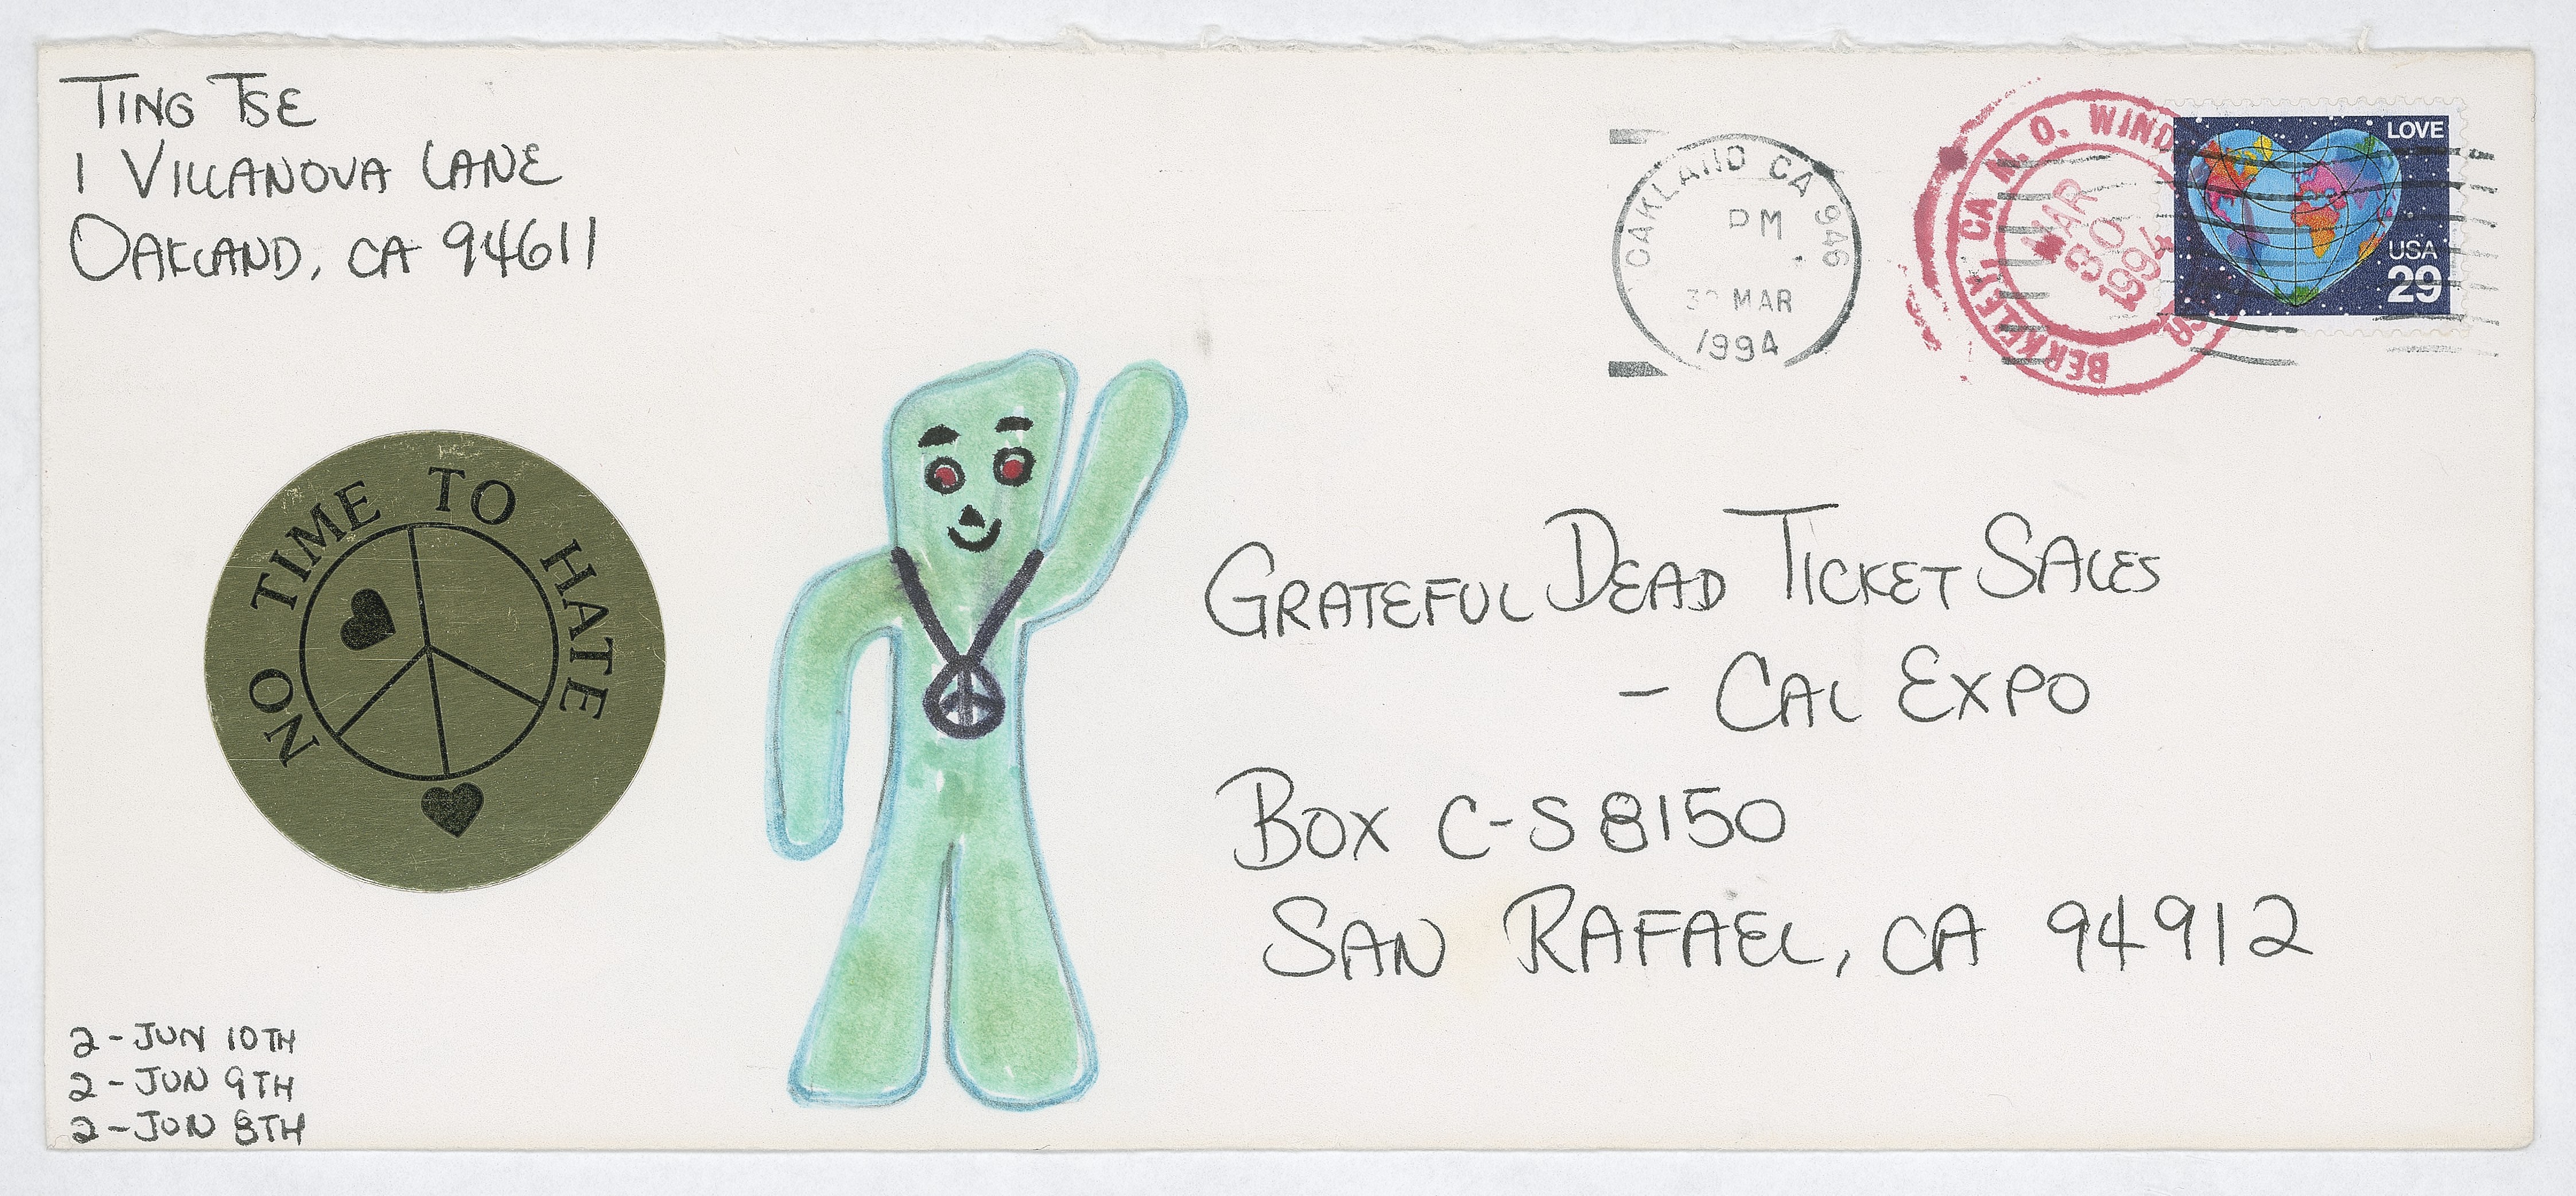 TING TSE
1 VILLANOVA LANE
OAKLAND, CA 94611
OAKLAND CA 946
PM
MAR
1994
BERKELEY CA M.O. WIND
MAR
30
1994
LOVE
USA
29
NO TIME TO HATE
GRATEFUL DEAD TICKET SALES
- CAL EXPO
BOX C-S 8150
SAN RAFAEL, CA 94912
2-JUN 10TH
2-JUN 9TH
2-JUN 8TH